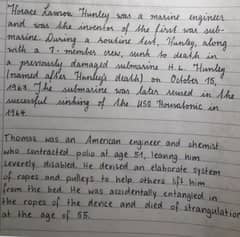 Horace Lawson Hunley was a marine engineer
and was the inventor of the first war sub-
marine. During a routine test, Hunley, along
with a 7-member crew, sunk to death in
a previously damaged submarine H. L. Hunley
(named after Hunley's death) on October 15,
1963. The submarine was later reused in the
successful sinking of the USS Housatonic in
1964.
Thomas was an American engineer and chemist
who contracted polio at age 51, leaving him
severely disabled. He devised an elaborate system
of ropes and pulleys to help others lift him
from the bed. He was accidentally entangled in
the ropes of the device and died of strangulation
at the age of 55.